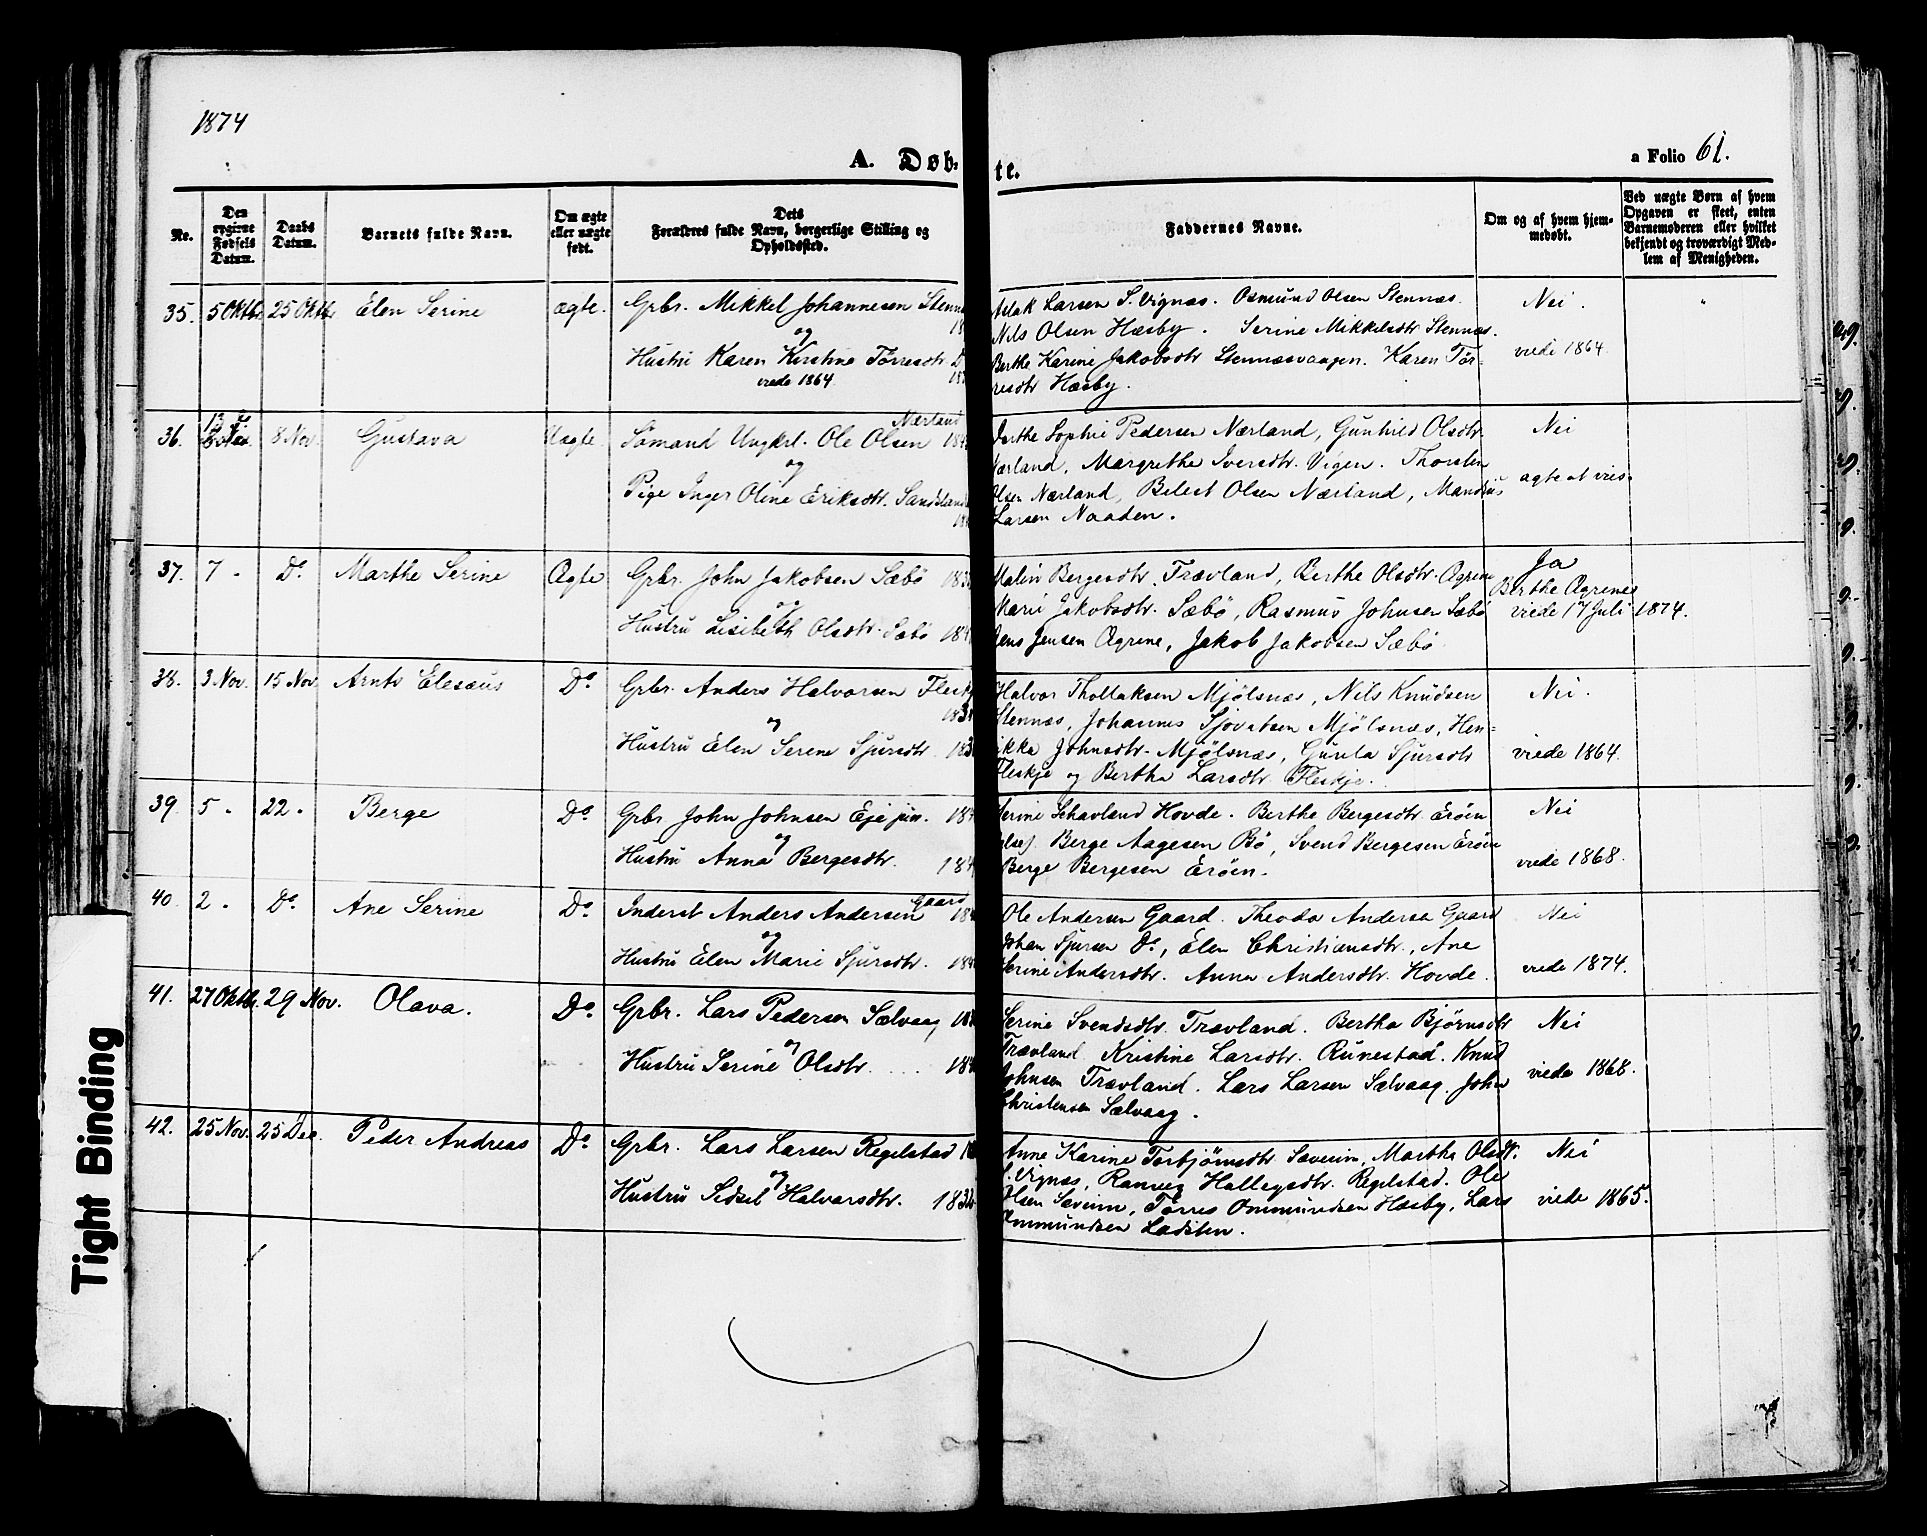 1874
A. Døb-
te.
a Folio 61.
No.
Den opgivne Fødsels Datum.
Daabs Datum.
Barnets fulde Navn.
Om ægte eller uægte født.
Dets Forældres fulde Navn, borgerlige Stilling og Opholdssted.
Faddernes Navne.
Om og af hvem hjemmedøbt.
Ved uægte Børn af hvem Opgaven er skeet, enten Barnemoderen eller hvilket bekjendt og troværdigt Medlem af Menigheden.
35. 5 Oktbr. 25 Oktbr. Elen Serine ægte. Grbr. Mikkel Johannesen
og
Hustru Karen Kirstine Tørresdtr.
viede 1864
Aslak Larsen S. Vignæs. Osmund Olsen Stennæs.
Nils Olsen Hæsby. Serine Mikkelsdtr Stennæs.
Berthe Karine Jakobsdtr Stennæsvaagen. Karen Tør-
resdtr Hæsby.
Nei.
viede 1864
36. 8 Nov. Gustava Uægte. Sømand Ungkrl. Ole Olsen Nærland
og
Pige Inger Oline Eriksdtr. Sandsland
Sophie Pedersen Nærland, Gunhild Olsdtr
Nærland, Margrethe Iversdtr. Vigen. Thorsten
Olsen Nærland, Belest Olsen Nærland, Mandius
Larsen Naaden.
Nei
agte at vies
37. 7 - Do. Marthe Serine Ægte Grbr. John Jakobsen Sæbö
og
Hustru Lisibeth Olsdtr. Sæbö
Malin Bergesdtr. Trævland, Berthe Olsdtr. Ågrene
Marie Jakobsdtr. Sæbö, Rasmus Johnsen Sæbö
Jens Jensen Ågrene, Jakob Jakobsen Sæbö
Ja
Berthe Ågrenes
viede 17 Juli 1874.
38. 3 Nov. 15 Nov. Arnts Elesæus Do. Grbr. Anders Halvorsen
og
Hustru Elen Serene Sjursdtr.
Halvor Thollaksen Mjölsnæs, Nils Knudsen
Stennæs, Johannes Sjovatsen Mjölsnæs, Hen-
rikka Johnsdtr. Mjölsnæs, Gurila Sjursdtr
Fleskje og Bertha Larsdtr. Fleskje.
Nei.
viede 1864.
39. 5 - 22 - Berge Do. Grbr John Johnsen Eje jun.
og
Hustru Anna Bergesdtr.
Serine Schavland Hovde. Berthe Bergesdtr. Eröen
Berge Aagesen Bö, Svend Bergesen Eröen
Berge Bergesen Eröen.
Nei
viede 1868.
40. 2 - Do. Ane Serine Do. Inderst Anders Andersen Gaard
og
Hustru Elen Marie Sjursdtr.
Ole Andersen Gaard. Theodor Andersen Gaard
Johan Sjursen Do, Elen Christiansdtr., Ane
Serine Andersdtr. Anna Andersdtr. Hovde.
Nei
viede 1874.
41. 27 Oktbr. 29 Nov. Olava. Do. Grbr. Lars Pedersen Sælvaag
og
Hustru Serine Olsdtr.
Serine Svendsdtr. Trævland. Bertha Björnsdtr
Trævland. Kristine Larsdtr. Runestad. Knud
Johnsen Trævland. Lars Larsen Sælvaag. John
Christensen Sælvaag.
Nei
viede 1868.
42. 25 Nov. 25 Dec. Peder Andreas Do. Grbr. Lars Larsen Regelstad
og
Hustru Sidsel Halvorsdtr. 1834
Anne Karine Torbjörnsdtr. Saverim, Martha Olsdtr.
S. Vignæs, Ranveig Hallegsdtr. Regelstad. Ole
Olsen Saverim, Törres Ommundsen Hæsby, Lars
Ommundsen Ladsten.
Nei
viede 1865.
Tight Binding